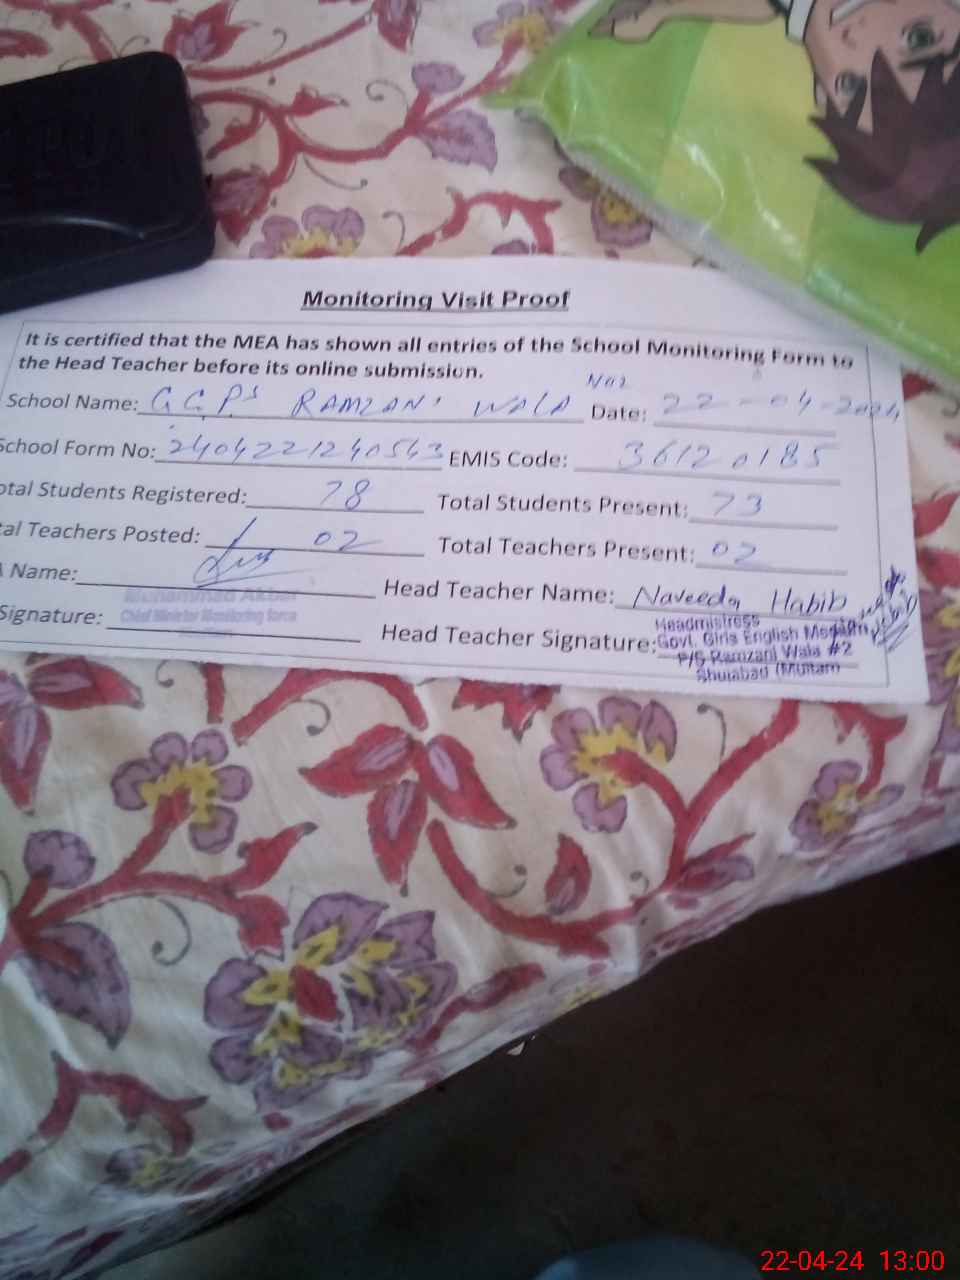 Monitoring Visit Proof
It is certified that the MEA has shown all entries of the School Monitoring Form to
the Head Teacher before its online submission.
School Name: G.G.P.S RAMZANI WALA No2 Date: 22-04-2024
School Form No: 2404221240543 EMIS Code: 36120185
otal Students Registered: 78 Total Students Present: 73
tal Teachers Posted: 02 Total Teachers Present: 02
Name: Head Teacher Name: Naveeda Habib
Muhammad Akbar
Chief Minister Monitoring Force
Signature: Head Teacher Signature:
Headmistress
Govt. Girls English Medium
P/S Ramzani Wala #2
Shujabad (Multan)
22-04-24 13:00